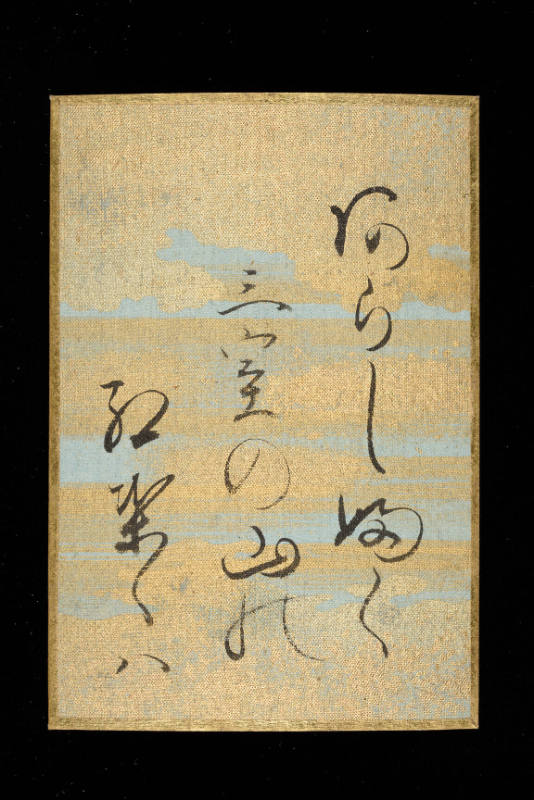 あらしふく
三室の山の
紅葉々ハ